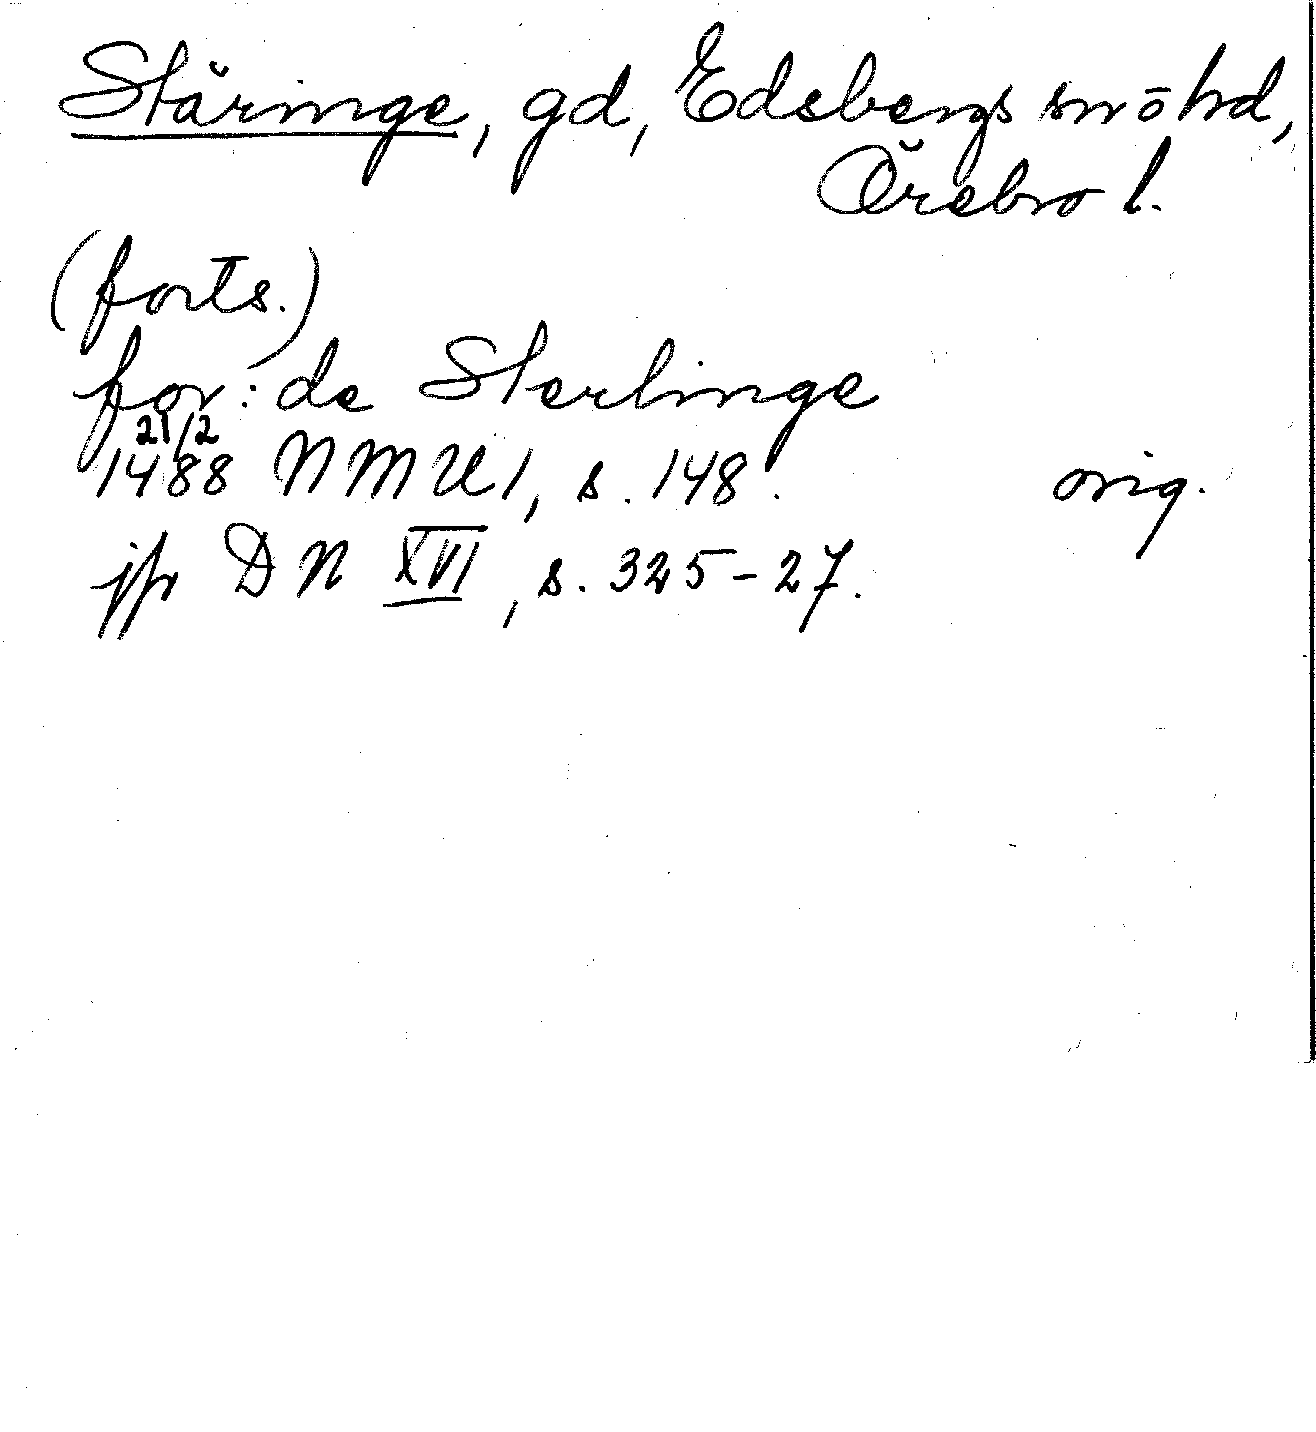 Stäringe, gd, Edsbergs sn ō hd,
Örebro l.
(forts.)
for: de Sterlinge
21/2
1488 NMU 1, s. 148. orig.
jfr DN XVI, s. 325-27.